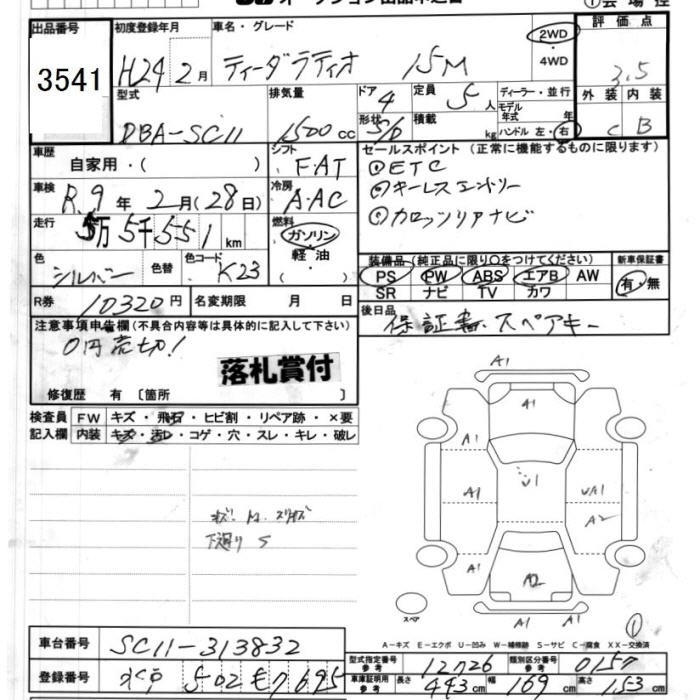 出品番号 初度登録年月 車名・グレード 評価点
3541 H24 2月 ティーダラティオ 15M 2WD・4WD 3.5
型式 排気量 ドア 4 定員 5人 ディーラー・並行 外装 内装
DBA-SC11 1500cc 形状 5/D 積載 kg モデル年式 年 ハンドル 左・右 C B
車歴 自家用・( ) シフト F・AT セールスポイント (正常に機能するものに限ります)
車検 R.9年 2月(28日) 冷房 A・AC ①ETC
②キーレスエントリー
走行 5万5千551km 燃料 ガソリン・軽油・( ) ③カロッツリアナビ
色 シルバー 色替 色コード K23 装備品(純正品に限り○をつけてください) 新車保証書
PS PW ABS エアB AW 有・無
SR ナビ TV カワ
R券 10320円 名変期限 月 日 後日品
保証書、スペアキー
注意事項申告欄(不具合内容等は具体的に記入して下さい)
0円売切!
落札賞付
修復歴 有 〔箇所 〕
検査員 FW キズ・飛石・ヒビ割・リペア跡・×要
記入欄 内装 キズ・汚レ・コゲ・穴・スレ・キレ・破レ
A1
A1
A1 A1
A1 U1 UA1
A2
A1 A2 A1
A1
スペア
①
A-キズ E-エクボ U-凹み W-補修跡 S-サビ C-腐食 XX-交換済
車台番号 SC11-313832
型式指定番号 参考 12726 類別区分番号 参考 0157
登録番号 水戸 502 も 7695
車庫証明用 参考 長さ 443cm 幅 169cm 高さ 153cm